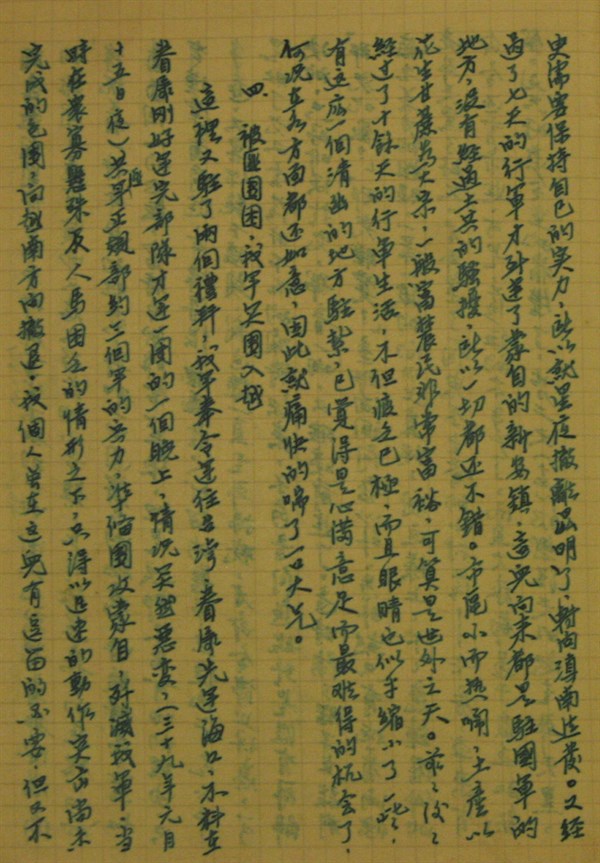 史儒害保持自己的实力，所以就星夜撤離昆明了，轉向滇南進發。又經
過了七天的行軍才到達了蒙自的新安鎮，這兒向來都是駐國軍的
地方，没有經過土共的騷擾，所以一切都还不錯。市區小而热鬧，土產以
花生甘蔗為大宗，一般富農民非常富裕，可算是世外之天。前前後後
經过了十餘天的行軍生活，不但疲乏已極，而且眼睛也似乎縮小了一些，
有这広一個清幽的地方駐紮，已覺得是心満意足而最难得的机会了，
何况在各方面都还如意，因此就痛快的喘了一口大气。
四、被匪围困，我軍突围入越
這裡又駐了兩個禮拜，我軍奉令運往台湾，眷属先運海口，不料在
眷属刚好運完部隊才運一团的一個晚上，情况突然惡变，(三十九年元月
十五日夜)共匪軍正規部約三個軍的兵力，準備圍攻蒙自，歼滅我軍，当
時在衆寡懸殊及人馬困乏的情形之下，只得以迅速的動作突出尚未
完成的包圍，向越南方向撤退，我個人曾在这兒有逗留的必要，但又不